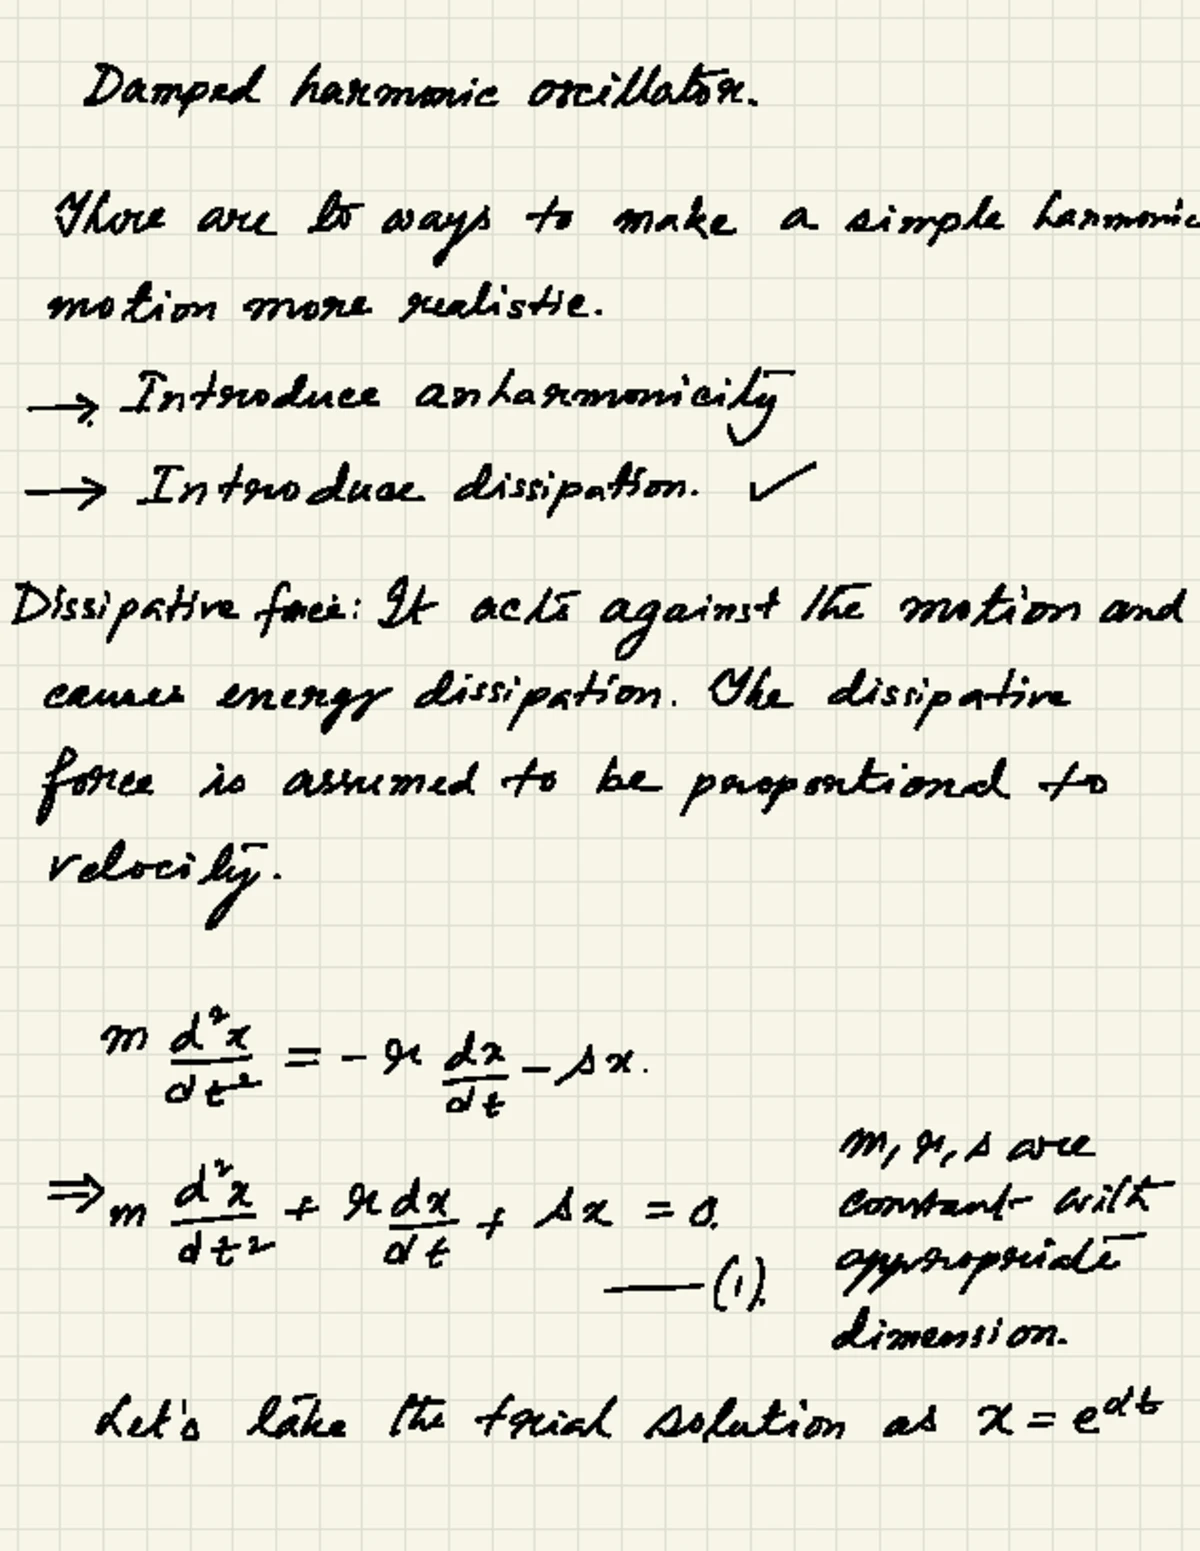 Damped harmonic oscillator.
There are two ways to make a simple harmonic
motion more realistic.
→ Introduce anharmonicity
→ Introduce dissipation. ✓
Dissipative force: It acts against the motion and
causes energy dissipation. The dissipative
force is assumed to be proportional to
velocity.
m d²x/dt² = - r dx/dt - sx.
⇒ m d²x/dt² + r dx/dt + sx = 0. —(1).
m, r, s are
constant with
appropriate
dimension.
Let's take the trial solution as x = e^αt